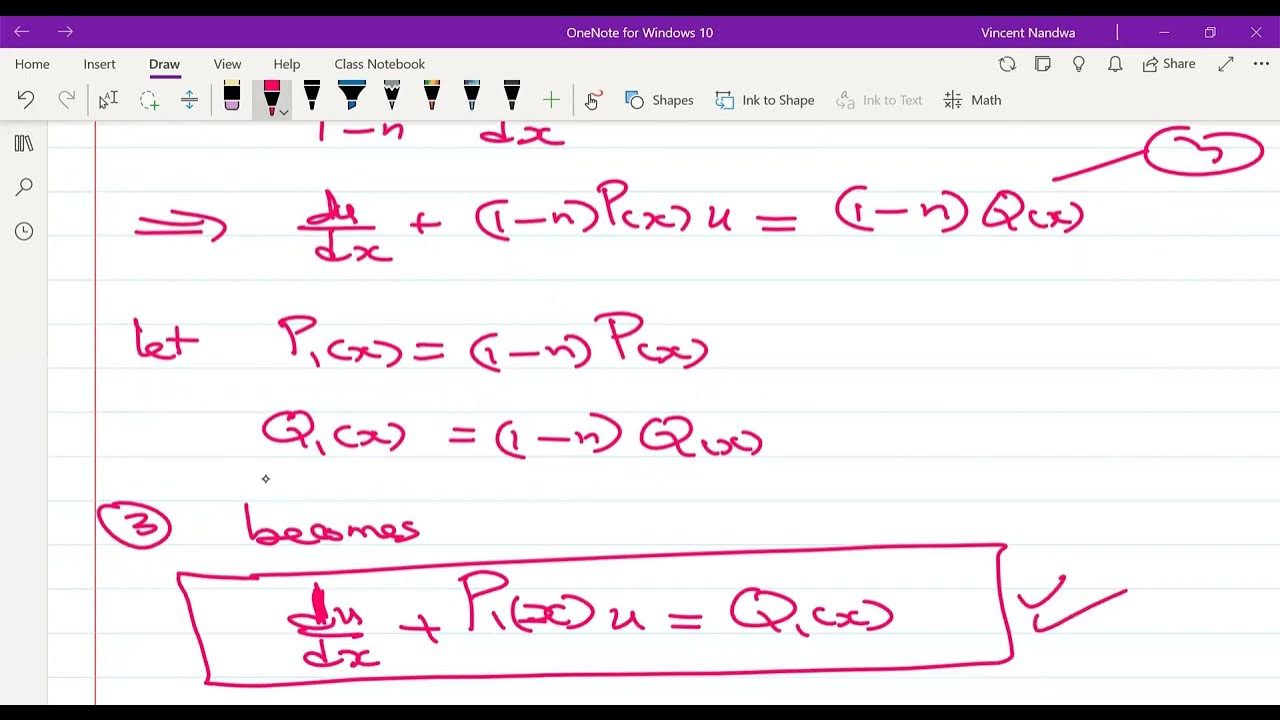 OneNote for Windows 10 Vincent Nandwa
Home Insert Draw View Help Class Notebook Share
Shapes Ink to Shape Ink to Text Math
1-n dx
⟹ du/dx + (1-n)P(x)u = (1-n)Q(x) 3
let P₁(x) = (1-n)P(x)
Q₁(x) = (1-n)Q(x)
3 becomes
du/dx + P₁(x)u = Q₁(x)